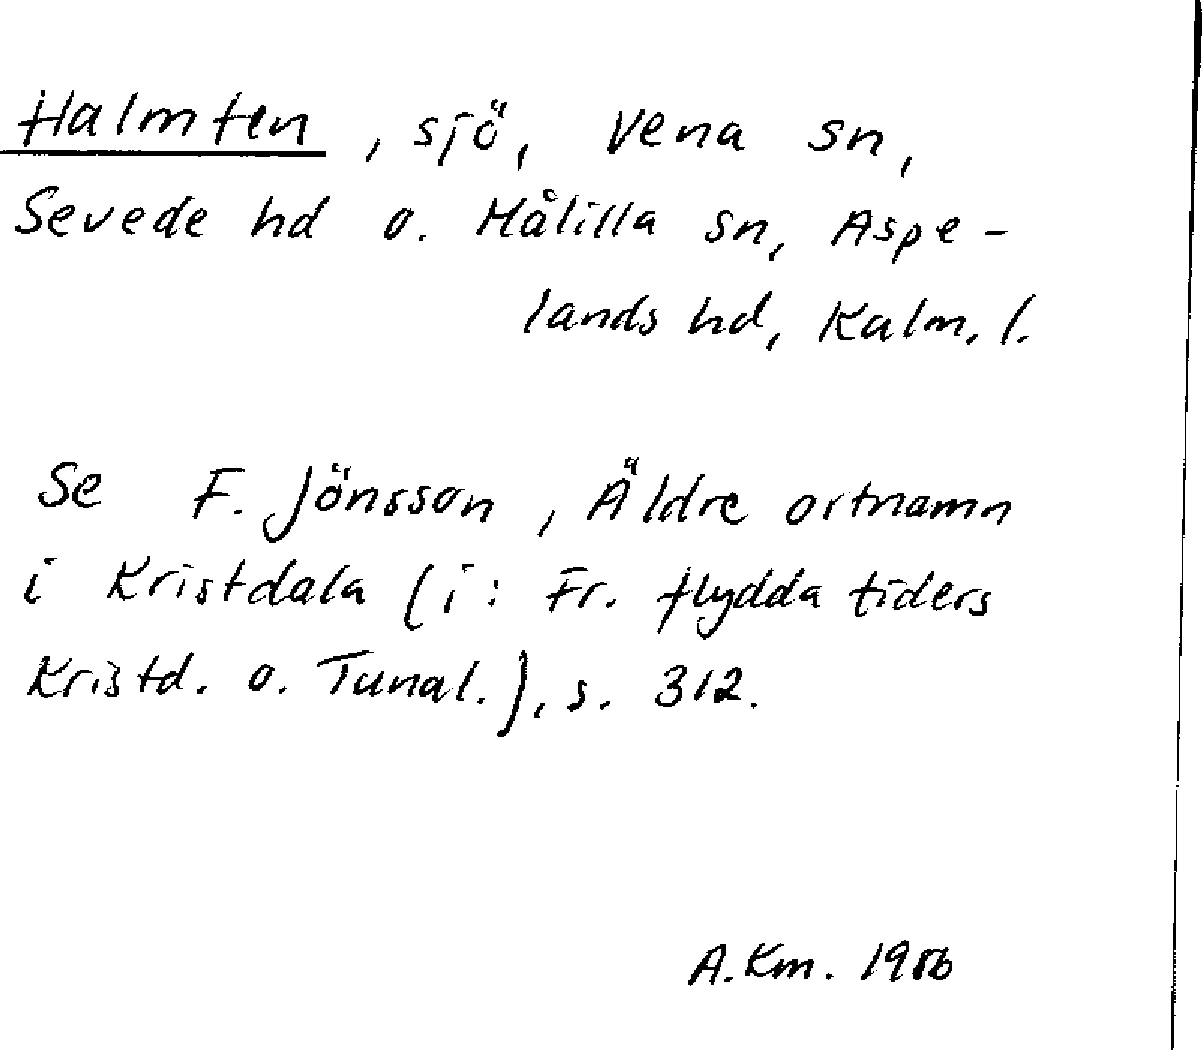 Halmten, sjö, Vena sn,
Sevede hd o. Målilla sn, Aspe-
lands hd, Kalm. l.
Se F. Jönsson, Äldre ortnamn
i Kristdala (i: Fr. flydda tiders
Kristd. o. Tunal.), s. 312.
A. Km. 1986